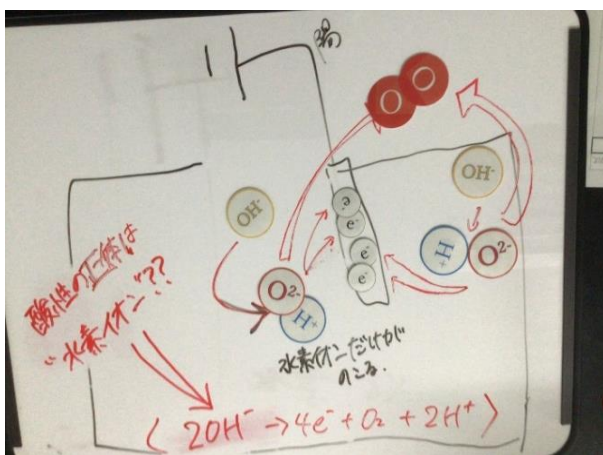 O O
OH⁻
OH⁻
e⁻
e⁻
e⁻
e⁻
H⁺
O²⁻
O²⁻
H⁺
酸性の正体は
"水素イオン"??
水素イオンだけが
のこる.
( 2OH⁻ → 4e⁻ + O₂ + 2H⁺ )